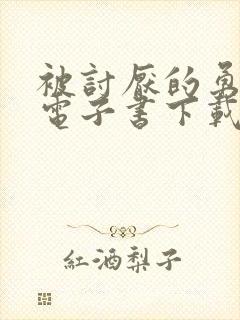 被討厭的勇
電子書下載
紅酒梨子